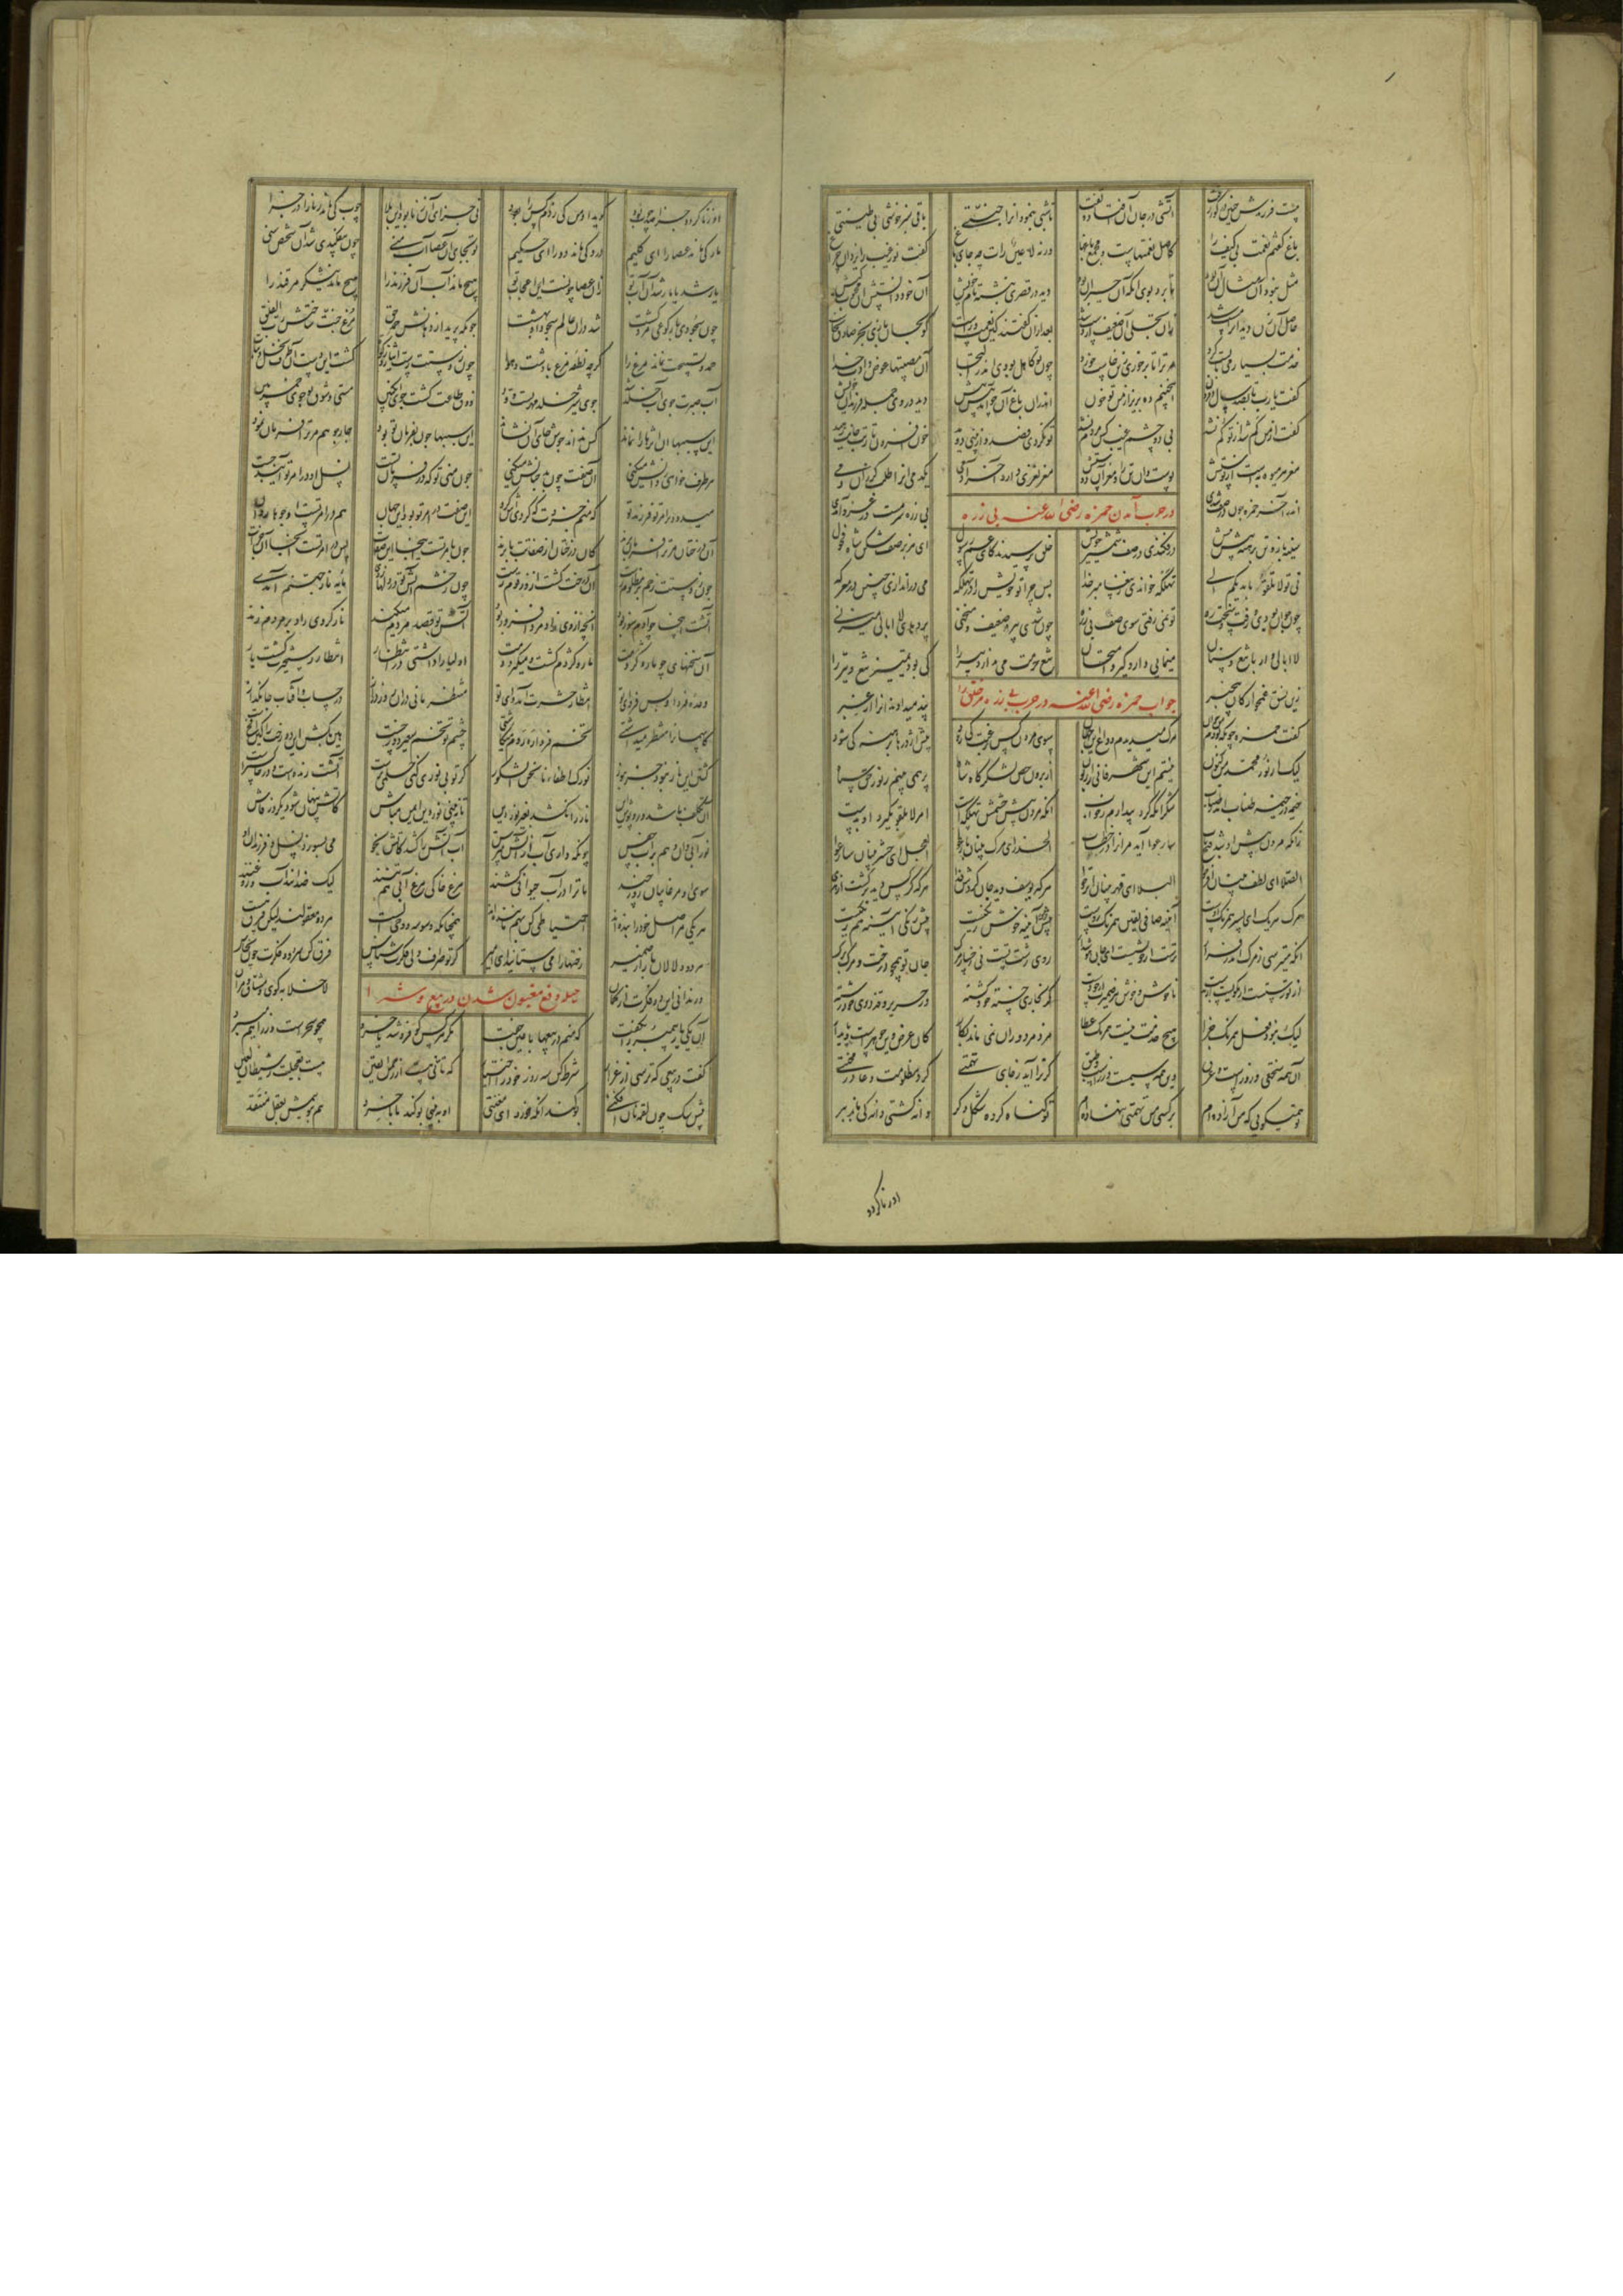 بیست فرزندش چنین در گور رفت آتشی در جان آن افتاد تفت تا شبی بنمود او را جنتی باقی سبزی خوشی بی ظنتی
باغ گفتم نعمت بی کیف را کاصل نعمتهاست و مجمع باغها ورنه لا عین رات چه جای باغ گفت نور غیب را یزدان چراغ
مثل نبود آن مثال آن بود تا برد بوی آنکه آن حیران بود دید در قصری نبشته نام خویش آن خود دانستش آن محبوب کیش
حاصل آن زن دید آنرا مست شد زان تجلی آن ضعیف از دست شد بعد ازان گفتند کین نعمت وراست کو بجان بازی بجز صادق نخاست
خدمت بسیار می بایست کرد مر ترا تا بر خوری زین چاشت خورد چون تو کاهل بودی اندر التجا آن مصیبتها عوض دادت خدا
گفت یا رب تا بصد سال و فزون اینچنینم ده بریز از من تو خون اندران باغ آن چو آمد پیش پیش دید در وی جمله فرزندان خویش
گفت از من کم شد از تو گم نشد بی دو چشم غیب کس مردم نشد تو نکردی فصد و از بینی دوید خون افزون تا ز تب جانت رهید
مغز هر میوه بهست از پوستش پوست دان تن را و مغز آن دوستش مغز نغزی دارد آخر آدمی یکدمی آنرا طلب گر زان دمی
در حرب آمدن حمزه رضی الله عنه بی زره
اندر آخر حمزه چون در صف شدی بی زره سرمست در غزو آمدی
سینه باز و تن برهنه پیش پیش در فکندی در صف شمشیر خویش خلق پرسیدند کای عم رسول ای هزبر صف شکن شاه فحول
نی تو لا تلقوا بایدیکم الی تهلکه خواندی ز پیغام خدا پس چرا تو خویش را در تهلکه می دراندازی چنین در معرکه
چون جوان بودی و زفت و سخت زه تو نمی رفتی سوی صف بی زره چون شدی پیر و ضعیف و منحنی پردهای لا ابالی میزنی
لا ابالی وار با تیغ و سنان مینمایی دار و گیر و امتحان تیغ حرمت می ندارد پیر را کی بود تمییز تیغ و تیر را
زین نسق غمخوارگان بیخبر پند میدادند او را از عبر
جواب حمزه رضی الله عنه در حرب بی زره مر خلق را
گفت حمزه چونکه بودم من جوان مرگ میدیدم وداع این جهان سوی مردن کس برغبت کی رود پیش اژدرها برهنه کی شود
لیک از نور محمد من کنون نیستم این شهر فانی را زبون از برون حس لشکرگاه شاه پر همی بینم ز نور حق سپاه
خیمه در خیمه طناب اندر طناب شکر آنکه کرد بیدارم ز خواب آنکه مردن پیش چشمش تهلکه است امر لا تلقوا بگیرد او بدست
زانکه مردن پیش او شد فتح باب سارعوا آید مر او را در خطاب الحذر ای مرگ بینان بارعوا العجل ای حشر بینان سارعوا
الصلا ای لطف بینان افرحوا البلا ای قهر بینان اترحوا هرکه یوسف دید جان کردش فدا هرکه گرگش دید برگشت از هدی
مرگ هر یک ای پسر همرنگ اوست آینه صافی یقین همرنگ روست پیش ترک آینه خوش رنگیست پیش زنگی آینه هم زنگیست
آنکه میترسی ز مرگ اندر فرار آن ز خود ترسانی ای جان هوش دار روی زشت تست نی رخسار مرگ جان تو همچو درخت و مرگ برگ
از تو رستست ار نکویست ار بدست ناخوش و خوش هر ضمیرت از خودست گر بخاری خسته خود کشته در حریر و قز دری خود رشته
لیک نبود فعل همرنگ جزا هیچ خدمت نیست همرنگ عطا مزد مزدوران نمی ماند بکار کان عرض وین جوهرست و پایدار
آن همه سختی و زورست و عرق وین همه سیمست و زرست و طبق گر ترا آید ز جایی تهمتی کرد مظلومت دعا در محنتی
تو همیگویی که من آزاده‌ام بر کسی من تهمتی ننهاده‌ام تو گناهی کرده شکل دگر دانه کشتی دانه کی ماند ببر
او زنا کرد
او زنا کرد و جزا صد چوب بود گوید او من کی زدم کس را بعود نی جزای آن زنا بود این بلا چوب کی ماند زنا را در جزا
مار کی ماند عصا را ای کلیم درد کی ماند دوا را ای حکیم تو بجای آن عصا آب منی چون بیفکندی شد آن شخص سنی
یار شد یا مار شد آن آب تو زان عصا چونست این اعجاب تو هیچ ماند آب آن فرزند را هیچ ماند نیشکر مر قند را
چون سجودی یا رکوعی مرد کشت شد در آن عالم سجود او بهشت چونکه پرید از دهانش حمد حق مرغ جنت ساختش رب الفلق
حمد و تسبیحت نماند مرغ را گرچه نطفه مرغ بادست و هوا چون ز دستت رست ایثار و زکات گشت این دست آن طرف نخل و نبات
آب صبرت جوی آب خلد شد جوی شیر خلد مهر تست و ود ذوق طاعت گشت جوی انگبین مستی و شوق تو جوی خمر بین
این سببها آن اثرها را نماند کس نداند چونش جای آن نشاند این سببها چون بفرمان تو بود چار جو هم مر ترا فرمان نمود
هر طرف خواهی روانش میکنی آن صفت چون بد چنانش میکنی چون منی تو که در فرمان تست نسل او در امر تو آیند چست
میدود در امر تو فرزند تو که منم جزوت که کردی اش گرو آن صفت در امر تو بود این جهان هم در امر تست آن جوها روان
آن درختان مر ترا فرمان برند کان درختان از صفاتت با برند چون بامر تست اینجا این صفات پس در امر تست آنجا آن جزات
چون ز دستت زخم بر مظلوم رست آن درختی گشت ازو زقوم رست چون ز خشم آتش تو در دلها زدی مایه نار جهنم آمدی
آتشت اینجا چو آدم سوز بود آنچه از وی زاد مرد افروز بود آتش تو قصد مردم میکند نار کز وی زاد بر مردم زند
آن سخنهای چو مار و کژدمت مار و کژدم گشت و میگیرد دمت اولیا را داشتی در انتظار انتظار رستخیزت گشت یار
وعده فردا و پس فردای تو انتظار حشرت آمد وای تو منتظر مانی در آن روز دراز در حساب و آفتاب جانگداز
کاسمان را منتظر میداشتی تخم فردا ره روم میکاشتی خشم تو تخم سعیر دوزخست هین بکش این دوزخت را کین فخست
کشتن این نار نبود جز بنور نورک اطفا نارنا نحن الشکور گر تو بی نوری کنی حلمی بدست آتشت زنده ست و در خاکسترست
آن تکلف باشد و روپوش هین نار را نکشد بغیر نور دین تا نبینی نور دین ایمن مباش کاتش پنهان شود یکروز فاش
نور آبی دان و هم بر آب چفس چونکه داری آب از آتش مترس آب آتش را کشد کاتش بخو می بسوزد نسل و فرزندان او
سوی آن مرغابیان رو روز چند تا ترا در آب حیوانی کشند مرغ خاکی مرغ آبی هم تنند لیک ضدانند آب و روغنند
هر یکی مر اصل خود را بنده اند احتیاطی کن بهم ماننده اند همچنانکه وسوسه و وحی الست هر دو معقولند لیکن فرق هست
هر دو دلالان بازار ضمیر رختها را می ستانند ای امیر گر تو صراف دلی فکرت شناس فرق کن سر دو فکرت چون نخاس
ور ندانی این دو فکرت از گمان لا خلابه گوی و مشتاب و مران
حیله دفع مغبون شدن در بیع و شرا
آن یکی یاری پیمبر را بگفت که منم در بیعها با غبن جفت مکر هر کس کو فروشد یا خرد همچو سحرست و ز راهم میبرد
گفت در بیعی که ترسی از غرار شرط کن سه روز خود را اختیار که تانی هست از رحمن یقین هست تعجیلت ز شیطان لعین
پیش سگ چون لقمه نان افکنی بو کند آنگه خورد ای معتنی او ببینی بو کند ما با خرد هم ببوییمش بعقل منتقد